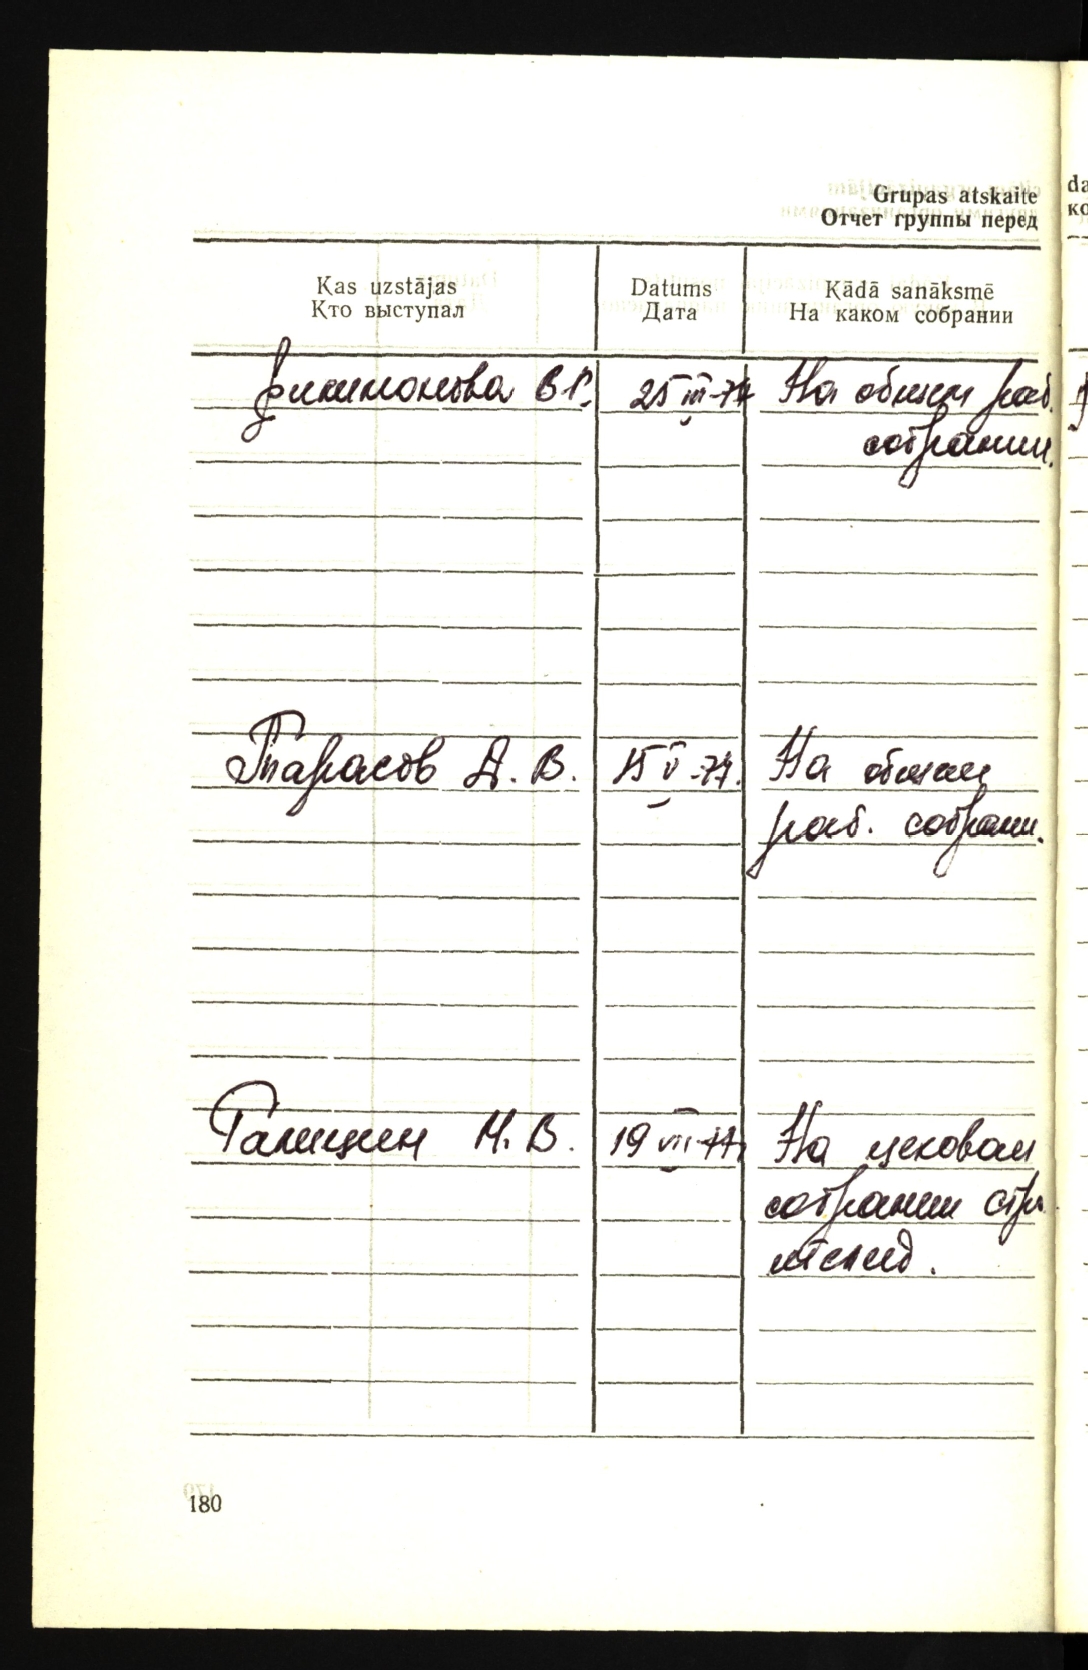 Grupas atskaite
Отчет группы перед
Kas uzstājas
Кто выступал
Datums
Дата
Kādā sanāksmē
На каком собрании
Филимонова В.Г. 25 III-77 На общем раб.
собрании.
Тарасов А. В. 15 V-77. На общем
раб. собрани.
Галицин Н. В. 19 VII-77. На цеховом
собрании
180